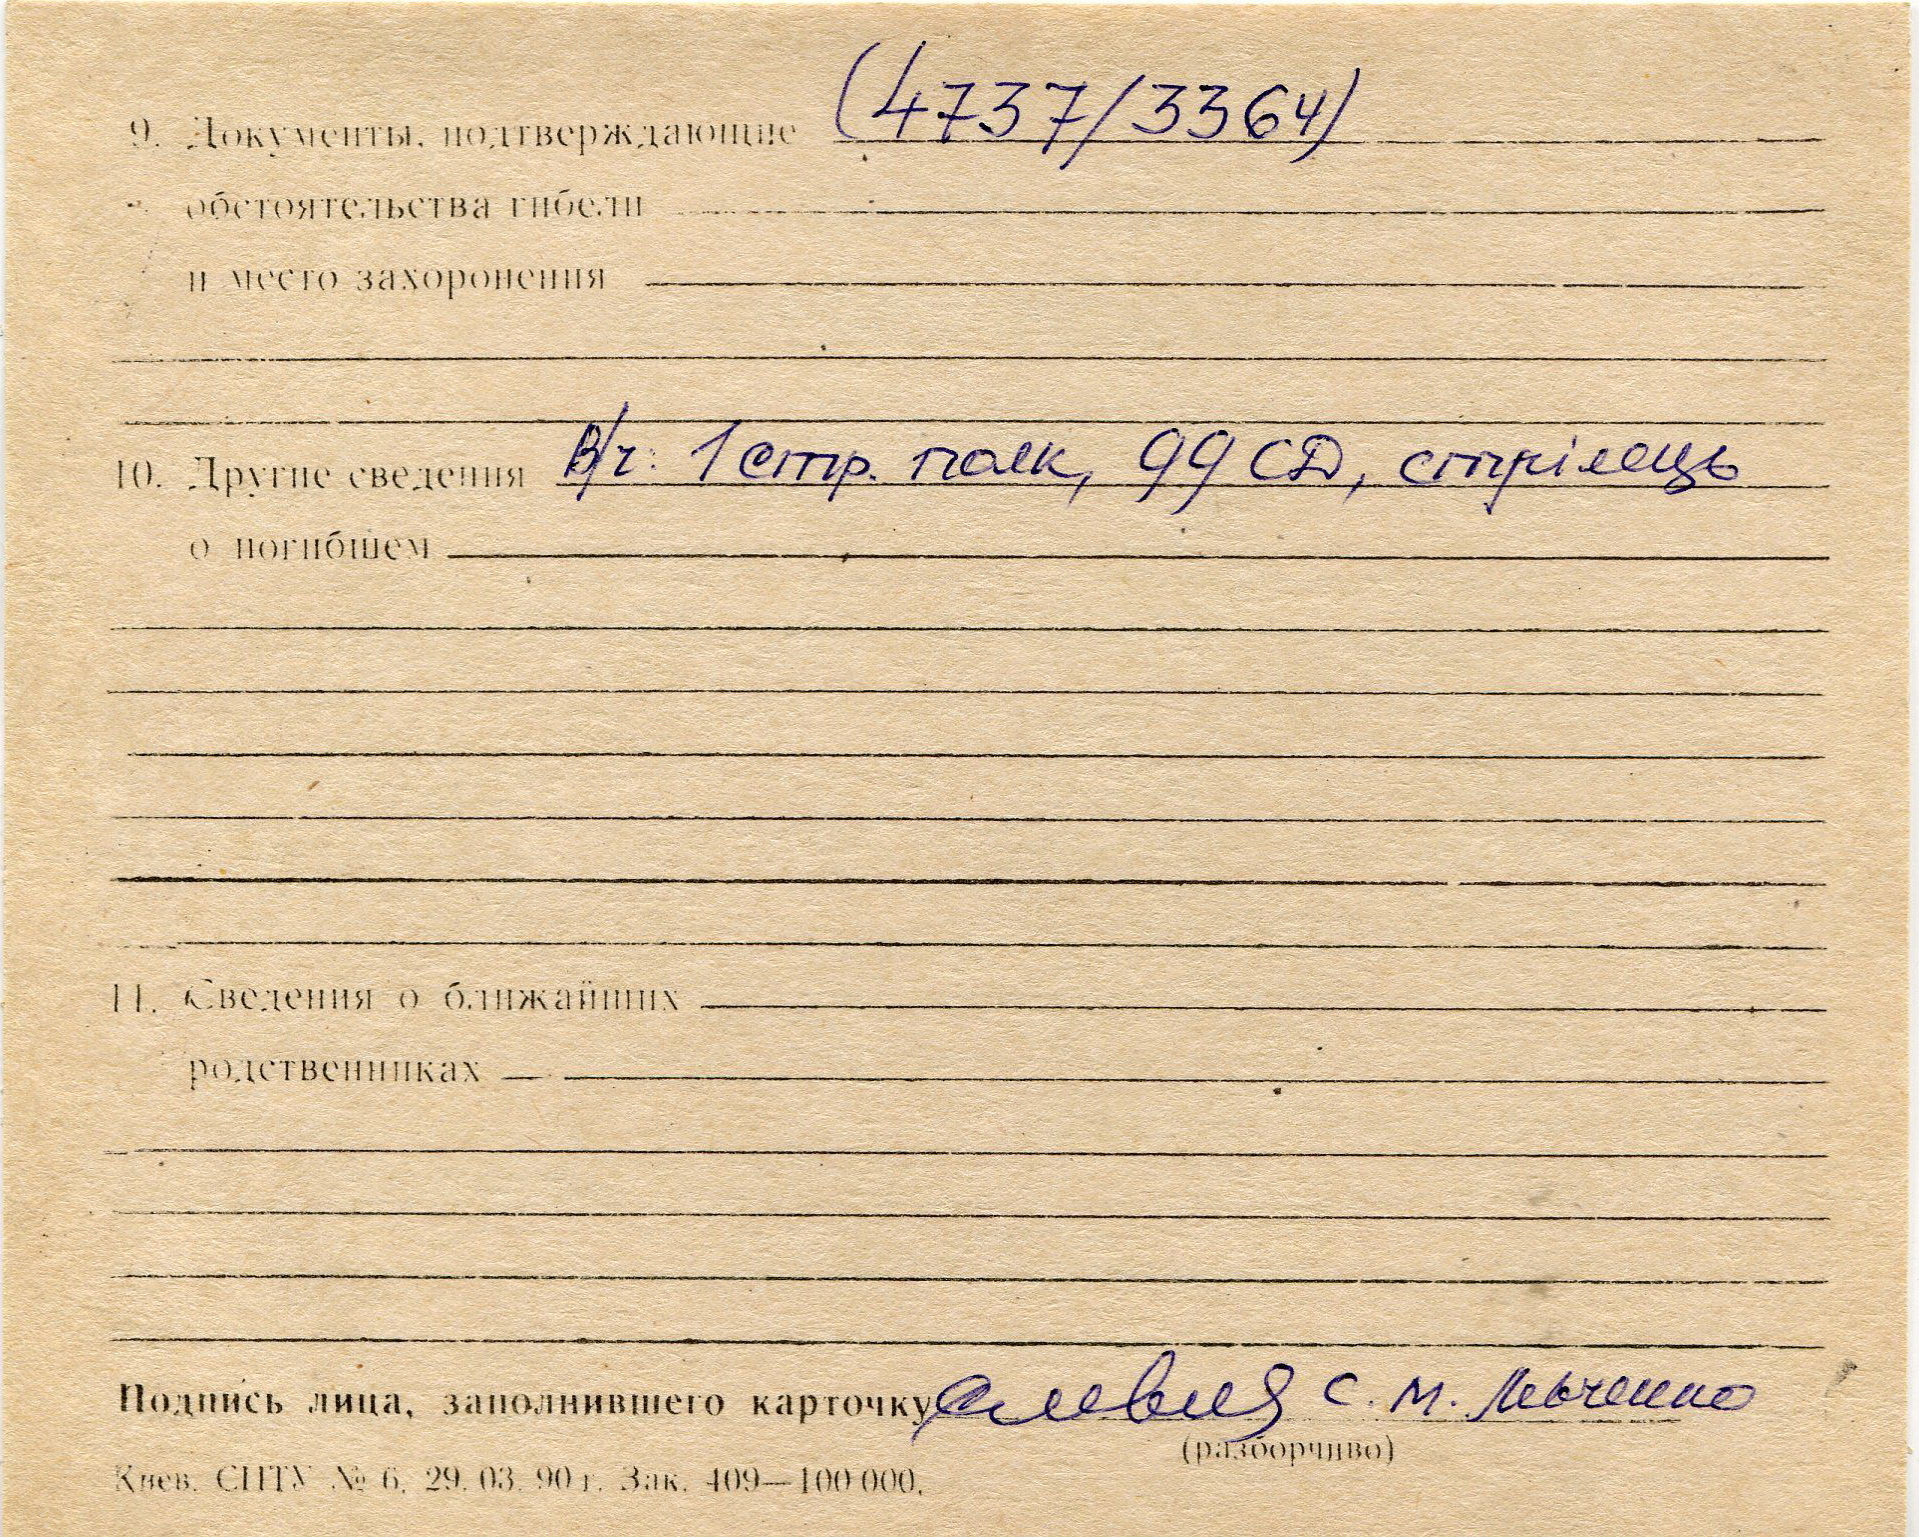 9. Документы, подтверждающие (4737/3364)
обстоятельства гибели
и место захоронения
10. Другие сведения в/ч: 1 стр. полк, 99 СД, стрілець
о погибшем
11. Сведения о ближайших
родственниках
Подпись лица, заполнившего карточку С. М. Левченко
(разборчиво)
Киев. СПТУ № 6. 29. 03. 90 г. Зак. 409—100 000.